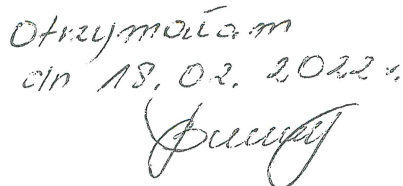 Otrzymałam
dn 18.02.2022 r.